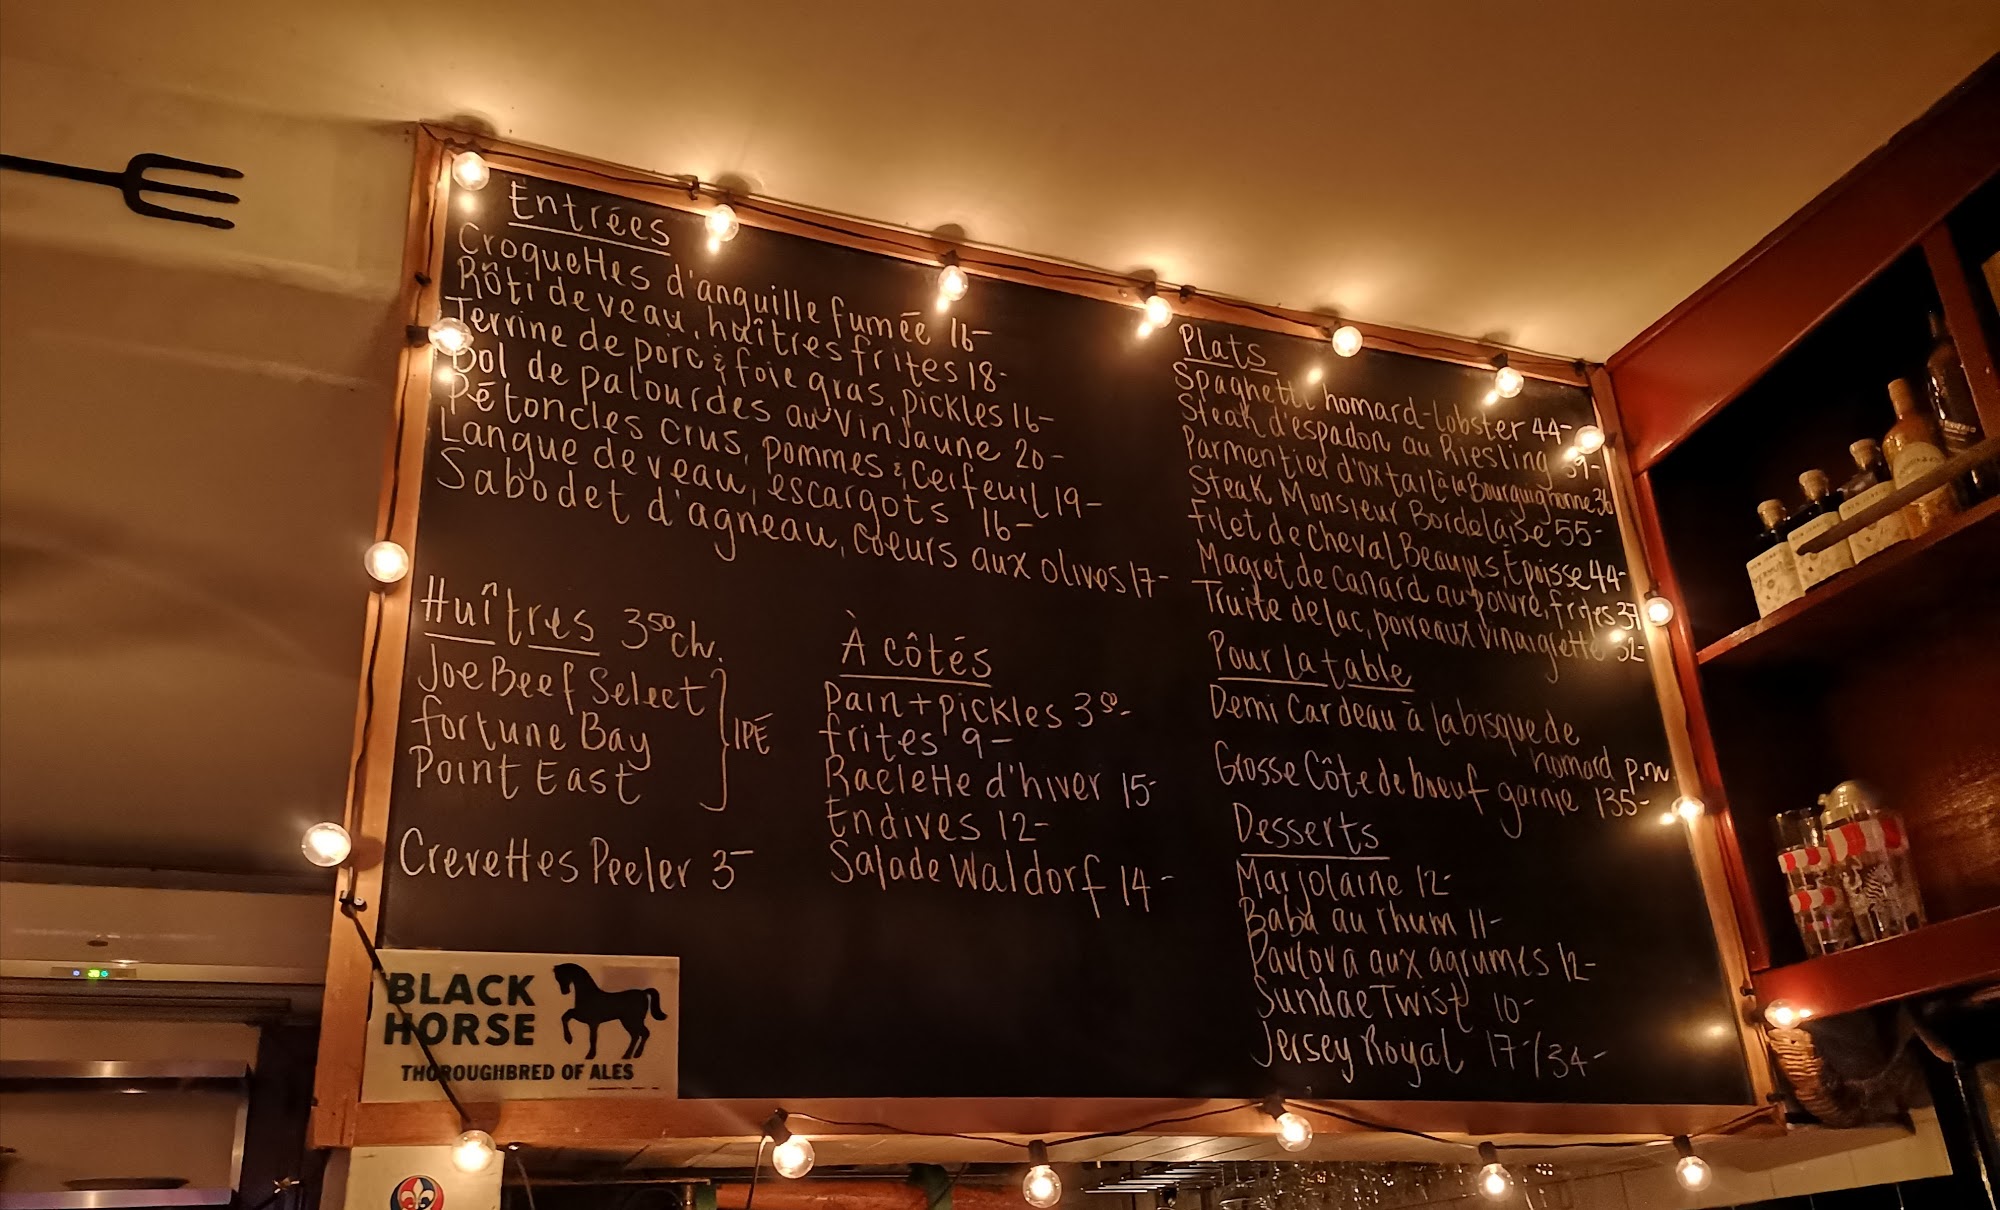 Entrées
Croquettes d'anguille fumée 16-
Rôti de veau, huîtres frites 18-
Terrine de porc & foie gras, pickles 16-
Bol de palourdes au Vin Jaune 20-
Pétoncles crus, pommes & Cerfeuil 19-
Langue de veau, escargots 16-
Sabodet d'agneau, coeurs aux olives 17-
Huîtres 3⁵⁰ch.
Joe Beef Select
Fortune Bay
Point East
IPÉ
Crevettes Peeler 3-
À côtés
Pain + pickles 3⁵⁰-
frites 9-
Raclette d'hiver 15-
Endives 12-
Salade Waldorf 14-
Plats
Spaghetti homard-lobster 44-
Steak d'espadon au Riesling 39-
Parmentier d'oxtail à la Bourguignonne 36
Steak Monsieur Bordelaise 55-
Filet de cheval Beaujus, Époisse 44-
Magret de canard au poivre, frites 37
Truite de lac, poireaux vinaigrette 32-
Pour la table
Demi Cardeau à la bisque de
homard p.m.
Grosse Côte de boeuf garnie 135-
Desserts
Marjolaine 12-
Baba au rhum 11-
Pavlova aux agrumes 12-
Sundae Twist 10-
Jersey Royal 17-/34-
BLACK
HORSE
THOROUGHBRED OF ALES